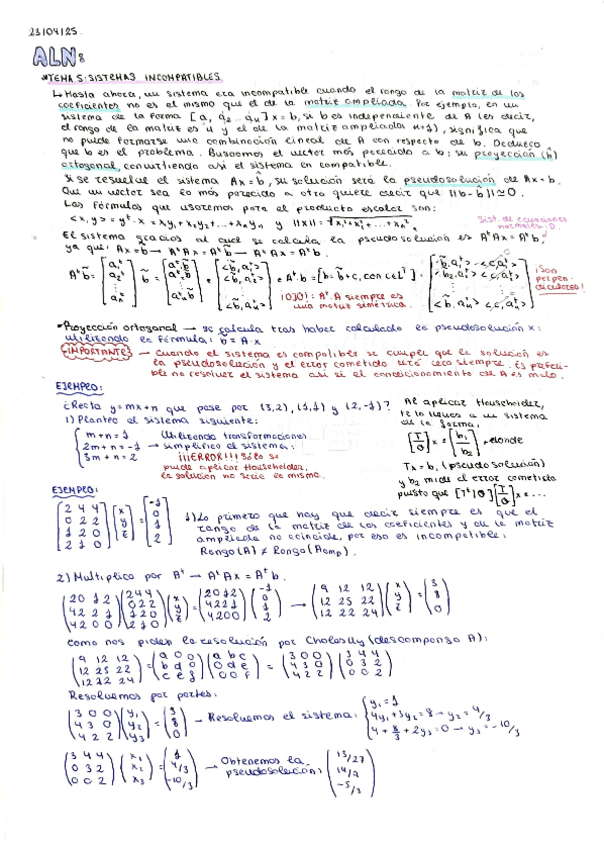 23/04/25.
ALN:
*TEMA 5: SISTEMAS INCOMPATIBLES.
↳ Hasta ahora, un sistema era incompatible cuando el rango de la matriz de los
coeficientes no es el mismo que el de la matriz ampliada. Por ejemplo, en un
sistema de la forma [a₁ a₂ ... aₙ] x = b, si b es independiente de A (es decir,
el rango de la matriz es n y el de la matriz ampliada n+1), significa que
no puede formarse una combinación lineal de A con respecto de b. Deduzco
que b es el problema. Buscamos el vector más parecido a b: su proyección (b̂)
ortogonal, convirtiendo así el sistema en compatible.
Si se resuelve el sistema Ax = b̂, su solución será la pseudosolución de Ax = b.
Que un vector sea lo más parecido a otro quiere decir que ||b - b̂|| ≃ 0.
Las fórmulas que usaremos para el producto escalar son:
<x, y> = yᵗ·x = x₁y₁ + x₂y₂ + ... + xₙyₙ y ||x|| = √x₁² + x₂² + ... + xₙ².
Sist. de ecuaciones
normales :D.
El sistema gracias al cual se calcula la pseudosolución es AᵗAx = Aᵗb,
ya que: Ax = b̃ → AᵗAx = Aᵗb̃ → AᵗAx = Aᵗb.
¡Son
perpen-
diculares!
¡OJO!: Aᵗ·A siempre es
una matriz simétrica.
*Proyección ortogonal → se calcula tras haber calculado la pseudosolución x:
utilizando la fórmula: b̂ = A·x
*IMPORTANTE → Cuando el sistema es compatible se cumple que la solución es
la pseudosolución y el error cometido será cero siempre. Es preferi-
ble no resolver el sistema así si el condicionamiento de A es malo.
EJEMPLO:
¿Recta y = mx + n que pase por (3,2), (1,1) y (2,-1)?
1) Planteo el sistema siguiente:
{ m + n = 1
2m + n = -1
3m + n = 2
Utilizando transformaciones
→ simplifico el sistema:
¡¡¡ERROR!!! Sólo se
puede aplicar Householder,
la solución no sería la misma.
Al aplicar Householder,
te lo lleves a un sistema
de la forma:
[T/0] x = [b₁/b₂], donde
Tx = b₁ (pseudosolución)
y b₂ mide el error cometido
puesto que [Tᵗ|0][T/0] x = ...
EJEMPLO:
(2 4 4
0 2 2
1 2 0
2 1 0) (x y z) = (-1 0 1 2)
1) Lo primero que hay que decir siempre es que el
rango de la matriz de los coeficientes y de la matriz
ampliada no coincide, por eso es incompatible:
Rango(A) ≠ Rango(Aamp).
2) Multiplico por Aᵗ → AᵗAx = Aᵗb.
(2 0 1 2
4 2 2 1
4 2 0 0) (2 4 4
0 2 2
1 2 0
2 1 0) (x y z) = (2 0 1 2
4 2 2 1
4 2 0 0) (-1 0 1 2) → (9 12 12
12 25 22
12 22 24) (x y z) = (3 8 0)
Como nos piden la resolución por Cholesky (descompongo A):
(9 12 12
12 25 22
12 22 24) = (a 0 0
b d 0
c e f) (a b c
0 d e
0 0 f) = (3 0 0
4 3 0
4 2 2) (3 4 4
0 3 2
0 0 2)
Resolvemos por partes:
(3 0 0
4 3 0
4 2 2) (y₁ y₂ y₃) = (3 8 0) → Resolvemos el sistema: { y₁ = 1
4y₁ + 3y₂ = 8 → y₂ = 4/3
4 + 8/3 + 2y₃ = 0 → y₃ = -10/3
(3 4 4
0 3 2
0 0 2) (x₁ x₂ x₃) = (1 4/3 -10/3) → Obtenemos la
pseudosolución: